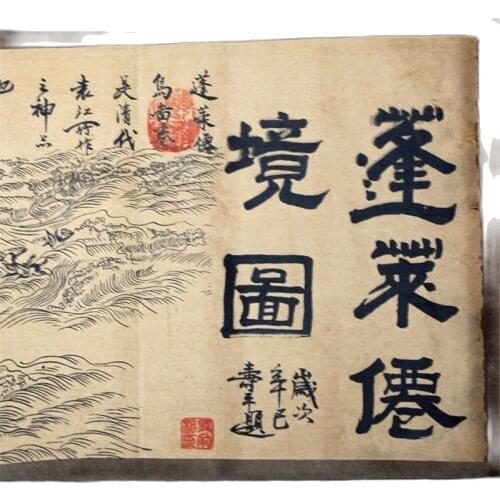 蓬萊僊
境圖
歲次
辛巳
壽平題
蓬萊僊
島圖卷
吴清代
袁江所作
之神品
也